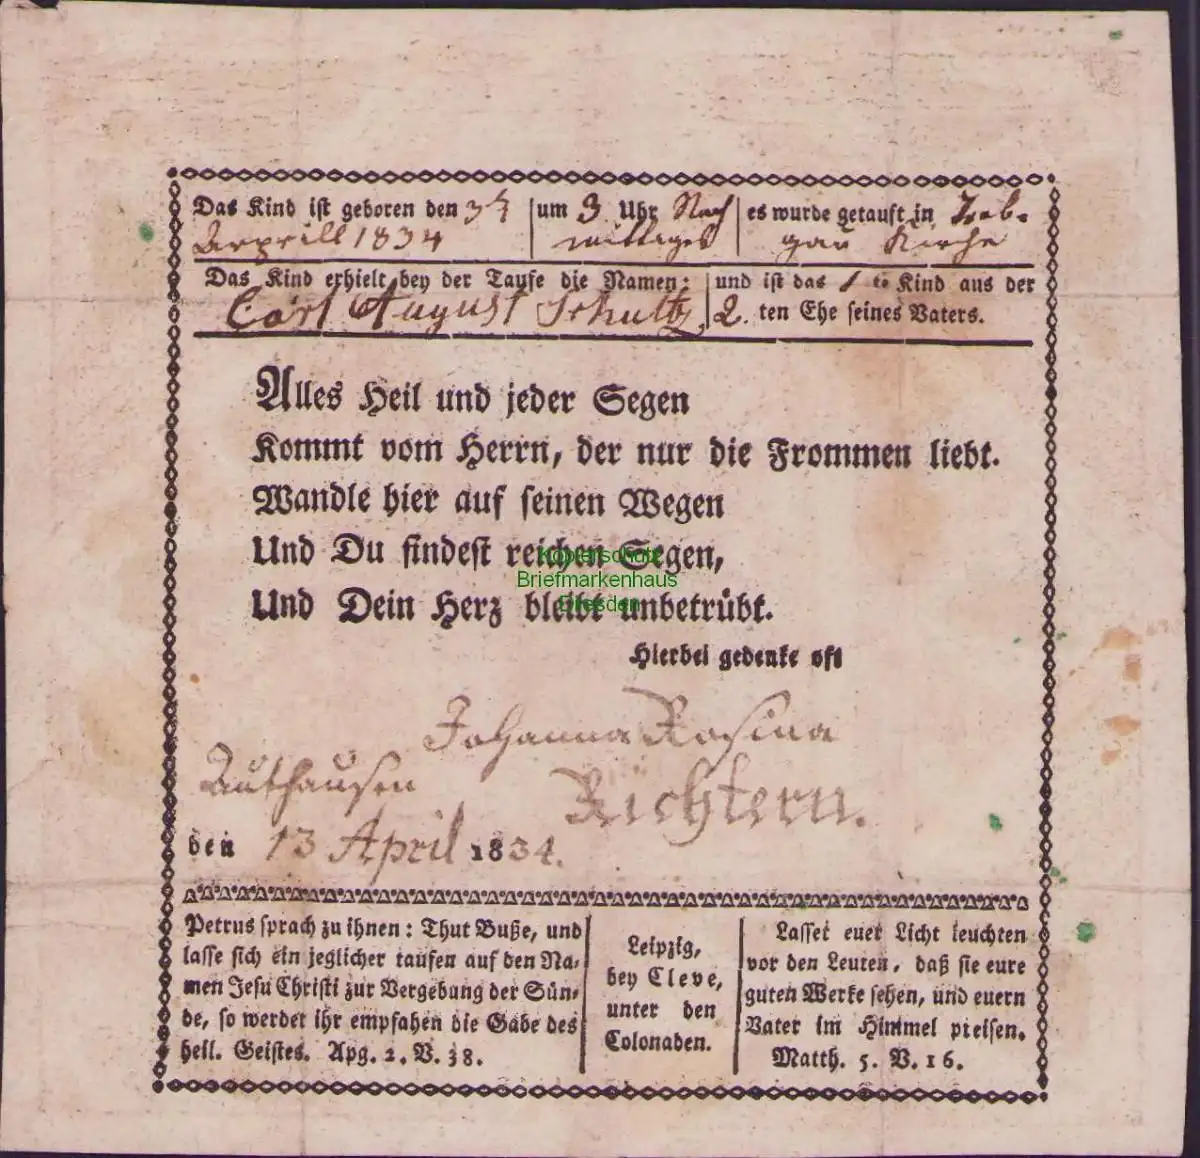 Das Kind ist geboren den 3t
Arprill 1834
um 3 Uhr Nach
mittages
es wurde getauft in
Kirche
Das Kind erhielt bey der Taufe die Namen:
Carl August Schultz
und ist das 1 te Kind aus der
2. ten Ehe seines Vaters.
Alles Heil und jeder Segen
Kommt vom Herrn, der nur die Frommen liebt.
Wandle hier auf seinen Wegen
Und Du findest reichen Segen,
Und Dein Herz bleibt unbetrübt.
Kopierschutz
Briefmarkenhaus
Dresden
Hierbei gedenke oft
Johanna Rosina
Authausen
Richtern.
den 13 April 1834.
Petrus sprach zu ihnen: Thut Buße, und
lasse sich ein jeglicher taufen auf den Na-
men Jesu Christi zur Vergebung der Sün-
de, so werdet ihr empfahen die Gabe des
heil. Geistes. Apg. 2. V. 38.
Leipzig,
bey Cleve,
unter den
Colonaden.
Lasset euer Licht leuchten
vor den Leuten, daß sie eure
guten Werke sehen, und euern
Vater im Himmel preisen.
Matth. 5. V. 16.